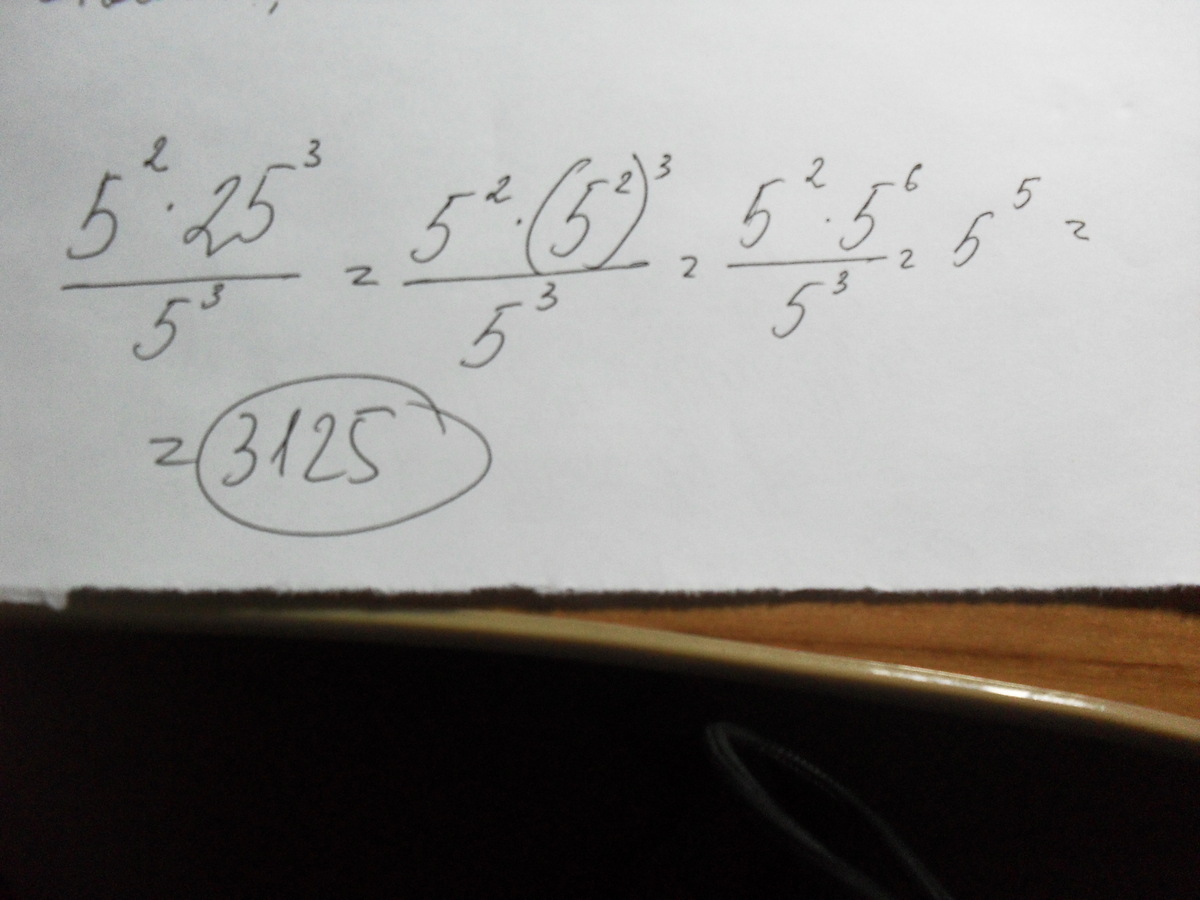 5² · 25³ / 5³ = 5² · (5²)³ / 5³ = 5² · 5⁶ / 5³ = 5⁵ =
= 3125